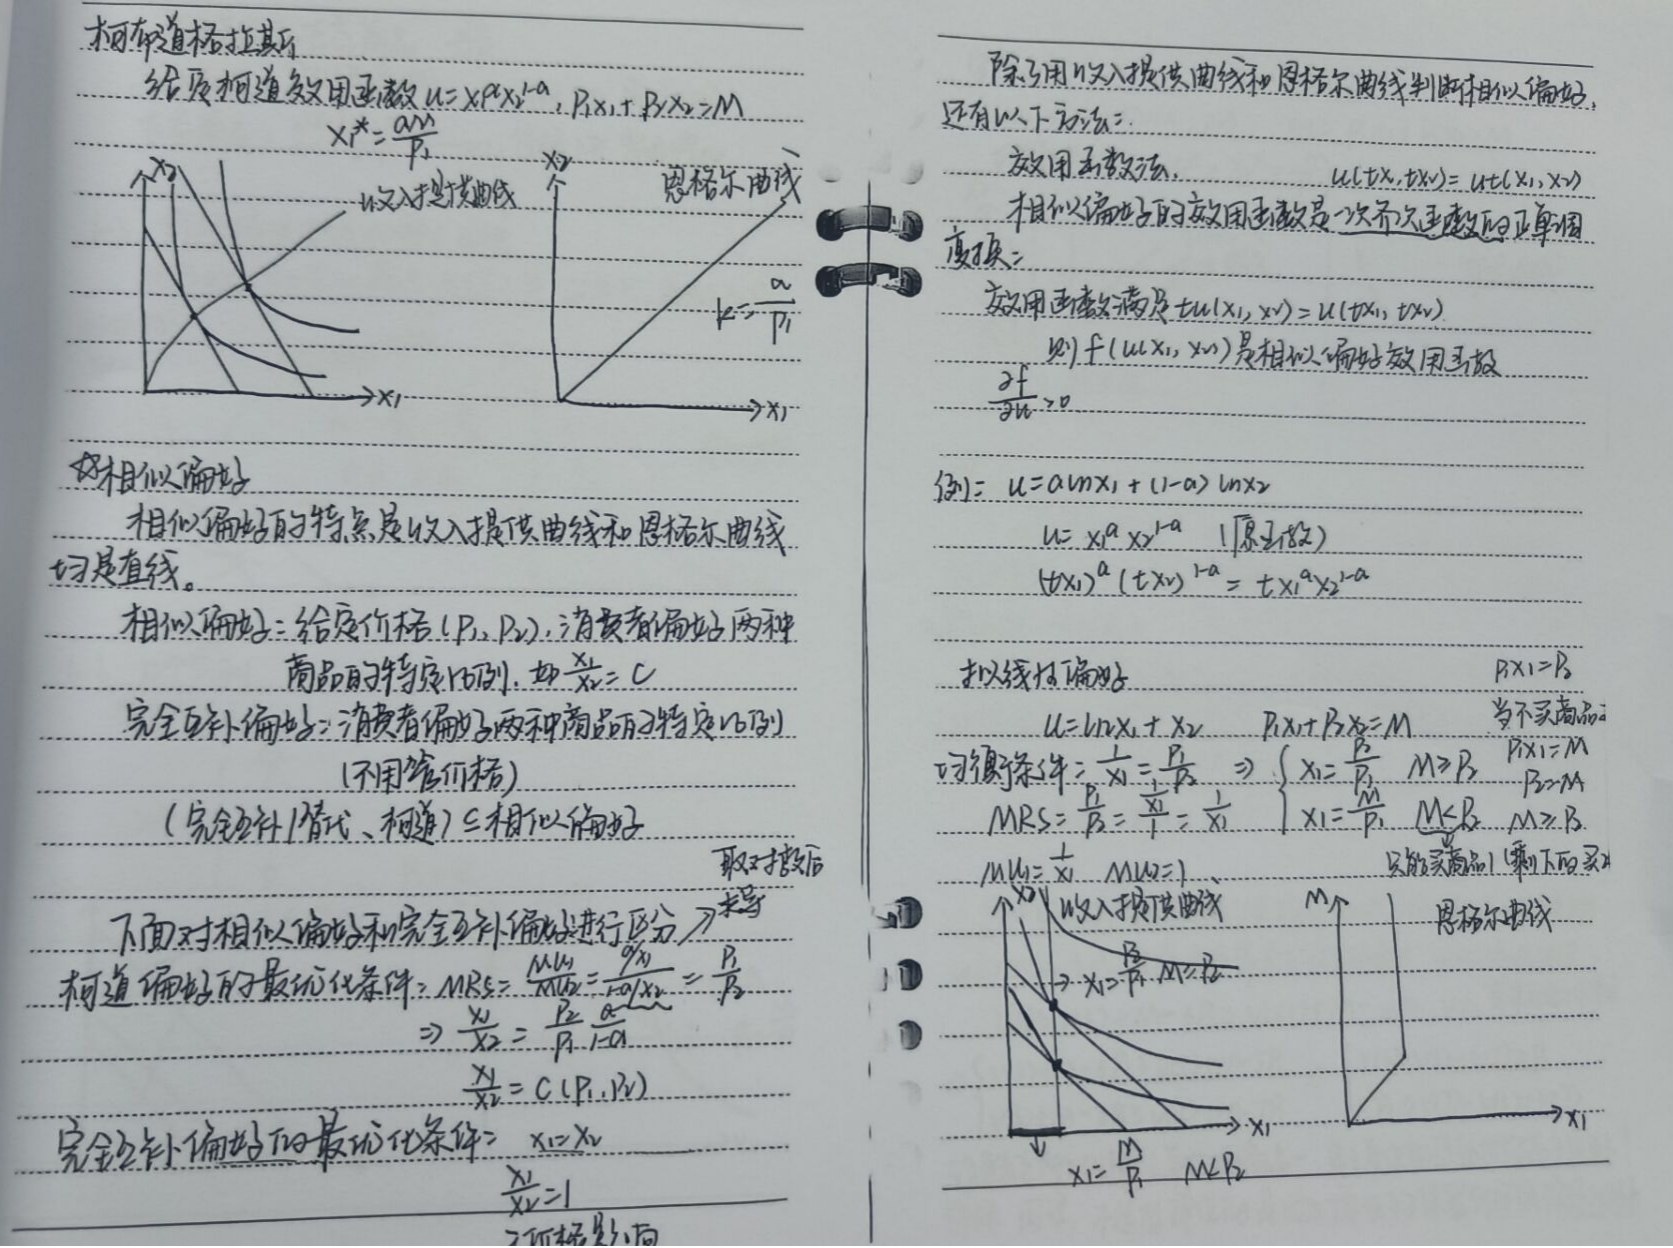 柯布道格拉斯
给定柯道效用函数 u=x₁ᵃx₂¹⁻ᵃ, P₁x₁+P₂x₂=M
x₁*=am/P₁
x₂
收入提供曲线
x₁
x₂
恩格尔曲线
k=a/P₁
x₁
☆相似偏好
相似偏好的特点是收入提供曲线和恩格尔曲线
均是直线。
相似偏好:给定价格(P₁,P₂),消费者偏好两种
商品的特定比例.如x₁/x₂=C
完全互补偏好:消费者偏好两种商品的特定比例
(不用管价格)
(完全互补/替代、柯道)⊆相似偏好
取对数后
求导
下面对相似偏好和完全互补偏好进行区分
柯道偏好的最优化条件: MRS=MU₁/MU₂=(a/x₁)/(1-a/x₂)=P₁/P₂
⇒ x₁/x₂=P₂/P₁ a/1-a
x₁/x₂=C(P₁,P₂)
完全互补偏好的最优化条件: x₁=x₂
x₁/x₂=1
除了用收入提供曲线和恩格尔曲线判断相似偏好,
还有以下方法:
效用函数法. u(tx₁,tx₂)=ut(x₁,x₂)
相似偏好的效用函数是一次齐次函数的正单调
变换:
效用函数满足tu(x₁,x₂)=u(tx₁,tx₂)
则f(u(x₁,x₂))是相似偏好效用函数
∂f/∂u>0
例: u=alnx₁+(1-a)lnx₂
u=x₁ᵃx₂¹⁻ᵃ (原函数)
(tx₁)ᵃ(tx₂)¹⁻ᵃ=tx₁ᵃx₂¹⁻ᵃ
拟线性偏好 P₁x₁=P₂
u=lnx₁+x₂ P₁x₁+P₂x₂=M 当不买商品2
均衡条件: 1/x₁=P₁/P₂ ⇒ { x₁=P₂/P₁ M≥P₂ P₁x₁=M
P₂=M
MRS=P₁/P₂=(1/x₁)/1=1/x₁ x₁=M/P₁ M<P₂ M≥P₂
MU₁=1/x₁ MU₂=1 只能买商品1 (剩下的买2
x₂
收入提供曲线
→x₁=P₂/P₁ M≥P₂
x₁
x₁=M/P₁ M<P₂
M
恩格尔曲线
x₁